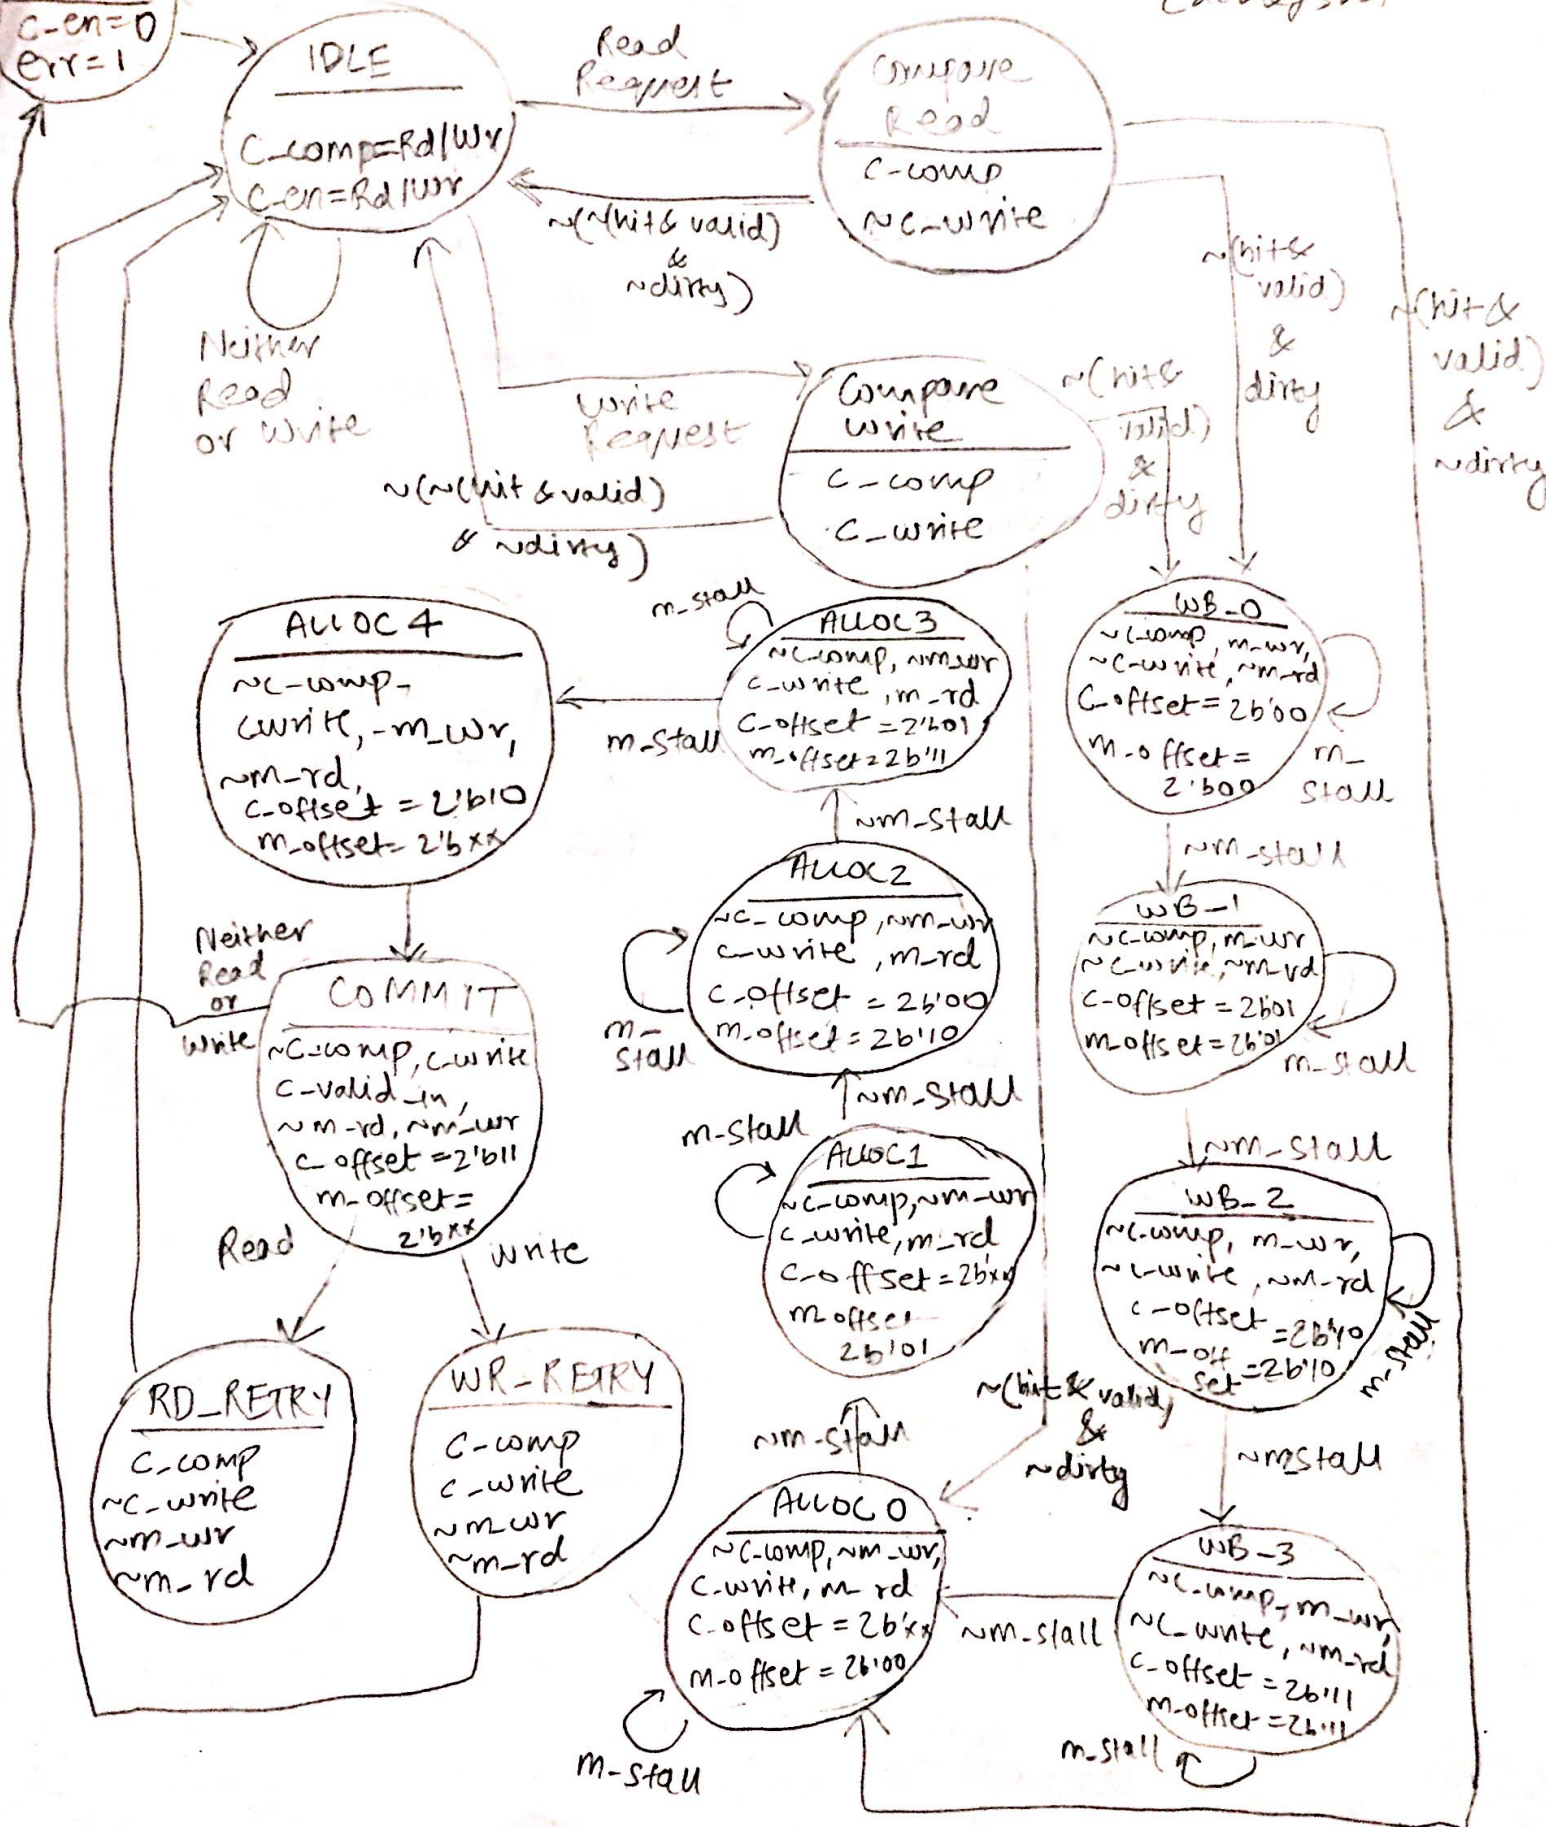 c_en=0
err=1
IDLE
C_comp=Rd/Wr
c_en=Rd/Wr
Read
Request
Compare
Read
c-comp
~c_write
~(~(hit & valid)
&
~dirty)
~(hit &
valid)
&
dirty
~(hit &
valid)
&
~dirty
Neither
Read
or Write
Write
Request
Compare
Write
C_comp
C_write
~(hit &
valid)
&
dirty
~(~(hit & valid)
& ~dirty)
ALLOC4
~c-comp-
cwrite,-m_wr,
~m_rd,
c-offset = 2'b10
m_offset= 2'bxx
m_stall
ALLOC3
~c_comp, ~m_wr
c_write, m_rd
c-offset = 2'b01
m_offset=2b'11
m_stall
WB_0
~c_comp, m_wr,
~c-write, ~m_rd
C-offset= 2b'00
m_offset=
2'b00
m_
stall
~m_stall
~m_stall
ALLOC2
~c_comp, ~m_wr
c_write, m_rd
c_offset = 2b'00
m_offset= 2b'10
m_
stall
WB_1
~c_comp, m_wr
~c_write, ~m_rd
c-offset = 2b01
m_offset=2b'01
m_stall
Neither
Read
or
Write
COMMIT
~c_comp, c_write
c_valid_in,
~m_rd, ~m_wr
c_offset =2'b11
m_offset=
2'bxx
~m_stall
m-stall
ALLOC1
~c_comp,~m_wr
c_write, m_rd
c_offset=2b'xx
m_offset
2b'01
~m_stall
WB_2
~c_comp, m_wr,
~c-write, ~m-rd
c-offset
=2b'10
m_off
set =2b'10
m_stall
Read
Write
RD_RETRY
C_comp
~c_write
~m_wr
~m_rd
WR_RETRY
C-comp
c_write
~m_wr
~m_rd
~m-stall
~(hit & valid)
&
~dirty
~m_stall
ALLOC0
~c_comp,~m_wr,
c_write, m_rd
c_offset = 2b'xx
m_offset = 2b'00
m-stall
~m_stall
WB_3
~c_comp, m_wr,
~c_write, ~m_rd
c_offset = 2b'11
m_offset =2b'11
m_stall